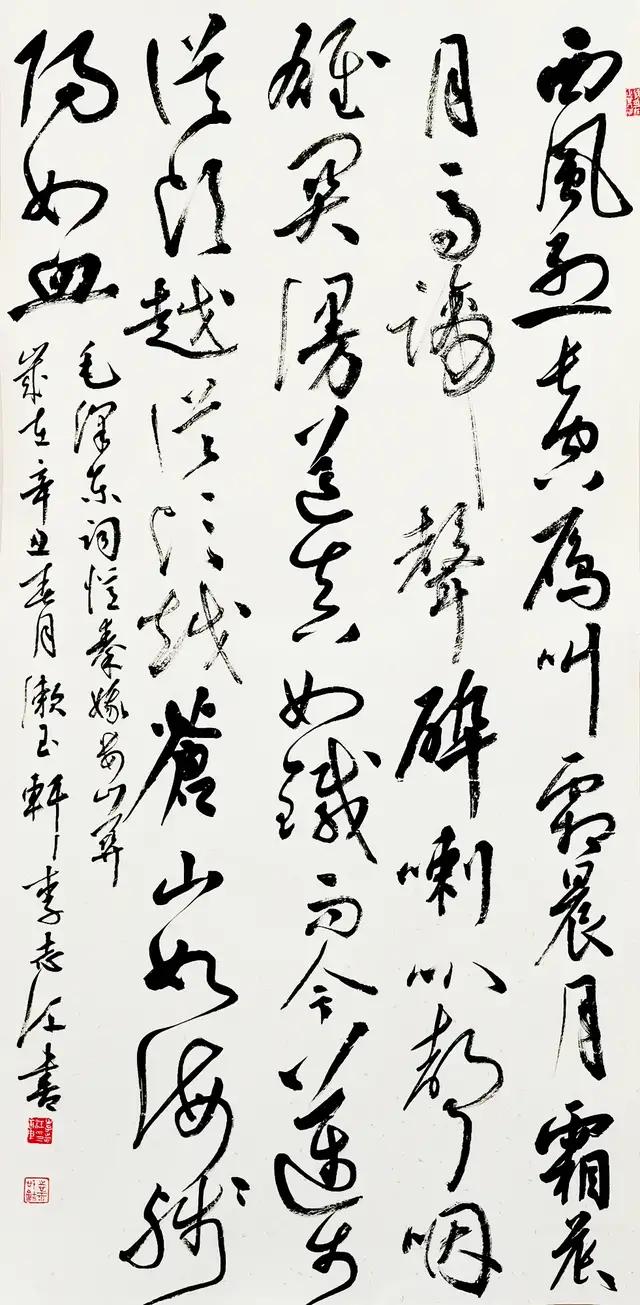 西風烈長空鴈叫霜晨月霜晨
月馬蹄聲碎喇叭聲咽
雄關漫道真如鐵而今邁步
從頭越從頭越蒼山如海殘
陽如血
毛澤东詞憶秦娥婁山關
歲在辛丑春月漱玉軒李志江書